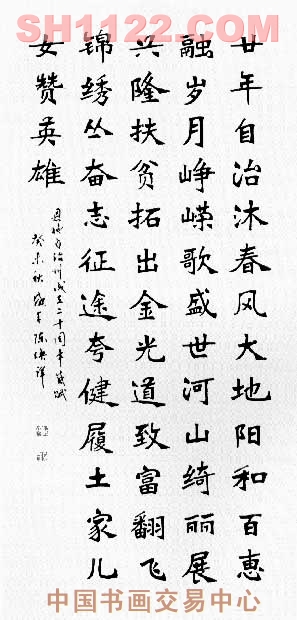 SH1122.COM
廿年自治沐春风大地阳和百惠
融岁月峥嵘歌盛世河山绮丽展
兴隆扶贫拓出金光道致富翻飞
锦绣丛奋志征途夸健履土家儿
女赞英雄
恩施自治州成立二十周年感赋
癸未秋
中国书画交易中心